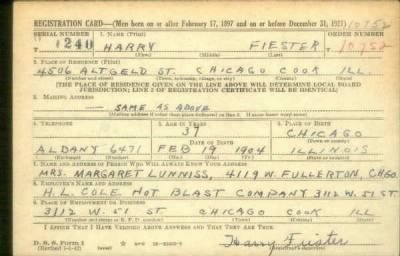 REGISTRATION CARD—(Men born on or after February 17, 1897 and on or before December 31, 1921) 10752
SERIAL NUMBER 1. NAME (Print) ORDER NUMBER
1240 HARRY FIESTER 10752
(First) (Middle) (Last)
2. PLACE OF RESIDENCE (Print)
4506 ALTGELD ST. CHICAGO COOK ILL.
(Number and street) (Town, township, village, or city) (County) (State)
[THE PLACE OF RESIDENCE GIVEN ON THE LINE ABOVE WILL DETERMINE LOCAL BOARD
JURISDICTION; LINE 2 OF REGISTRATION CERTIFICATE WILL BE IDENTICAL]
3. MAILING ADDRESS
SAME AS ABOVE
[Mailing address if other than place indicated on line 2. If same insert word same]
4. TELEPHONE 5. AGE IN YEARS 6. PLACE OF BIRTH
37 CHICAGO
DATE OF BIRTH (Town or county)
ALBANY 6471 FEB 19 1904 ILLINOIS
(Exchange) (Number) (Mo.) (Day) (Yr.) (State or country)
7. NAME AND ADDRESS OF PERSON WHO WILL ALWAYS KNOW YOUR ADDRESS
MRS. MARGARET LUNNISS, 4119 W. FULLERTON, CHGO.
8. EMPLOYER'S NAME AND ADDRESS
H.L. COLE HOT BLAST COMPANY 3112 W. 51 ST.
9. PLACE OF EMPLOYMENT OR BUSINESS
3112 W. 51 ST CHICAGO COOK ILL
(Number and street or R. F. D. number) (Town) (County) (State)
I AFFIRM THAT I HAVE VERIFIED ABOVE ANSWERS AND THAT THEY ARE TRUE.
D. S. S. Form 1
(Revised 1-1-42) (over) Harry Fiester